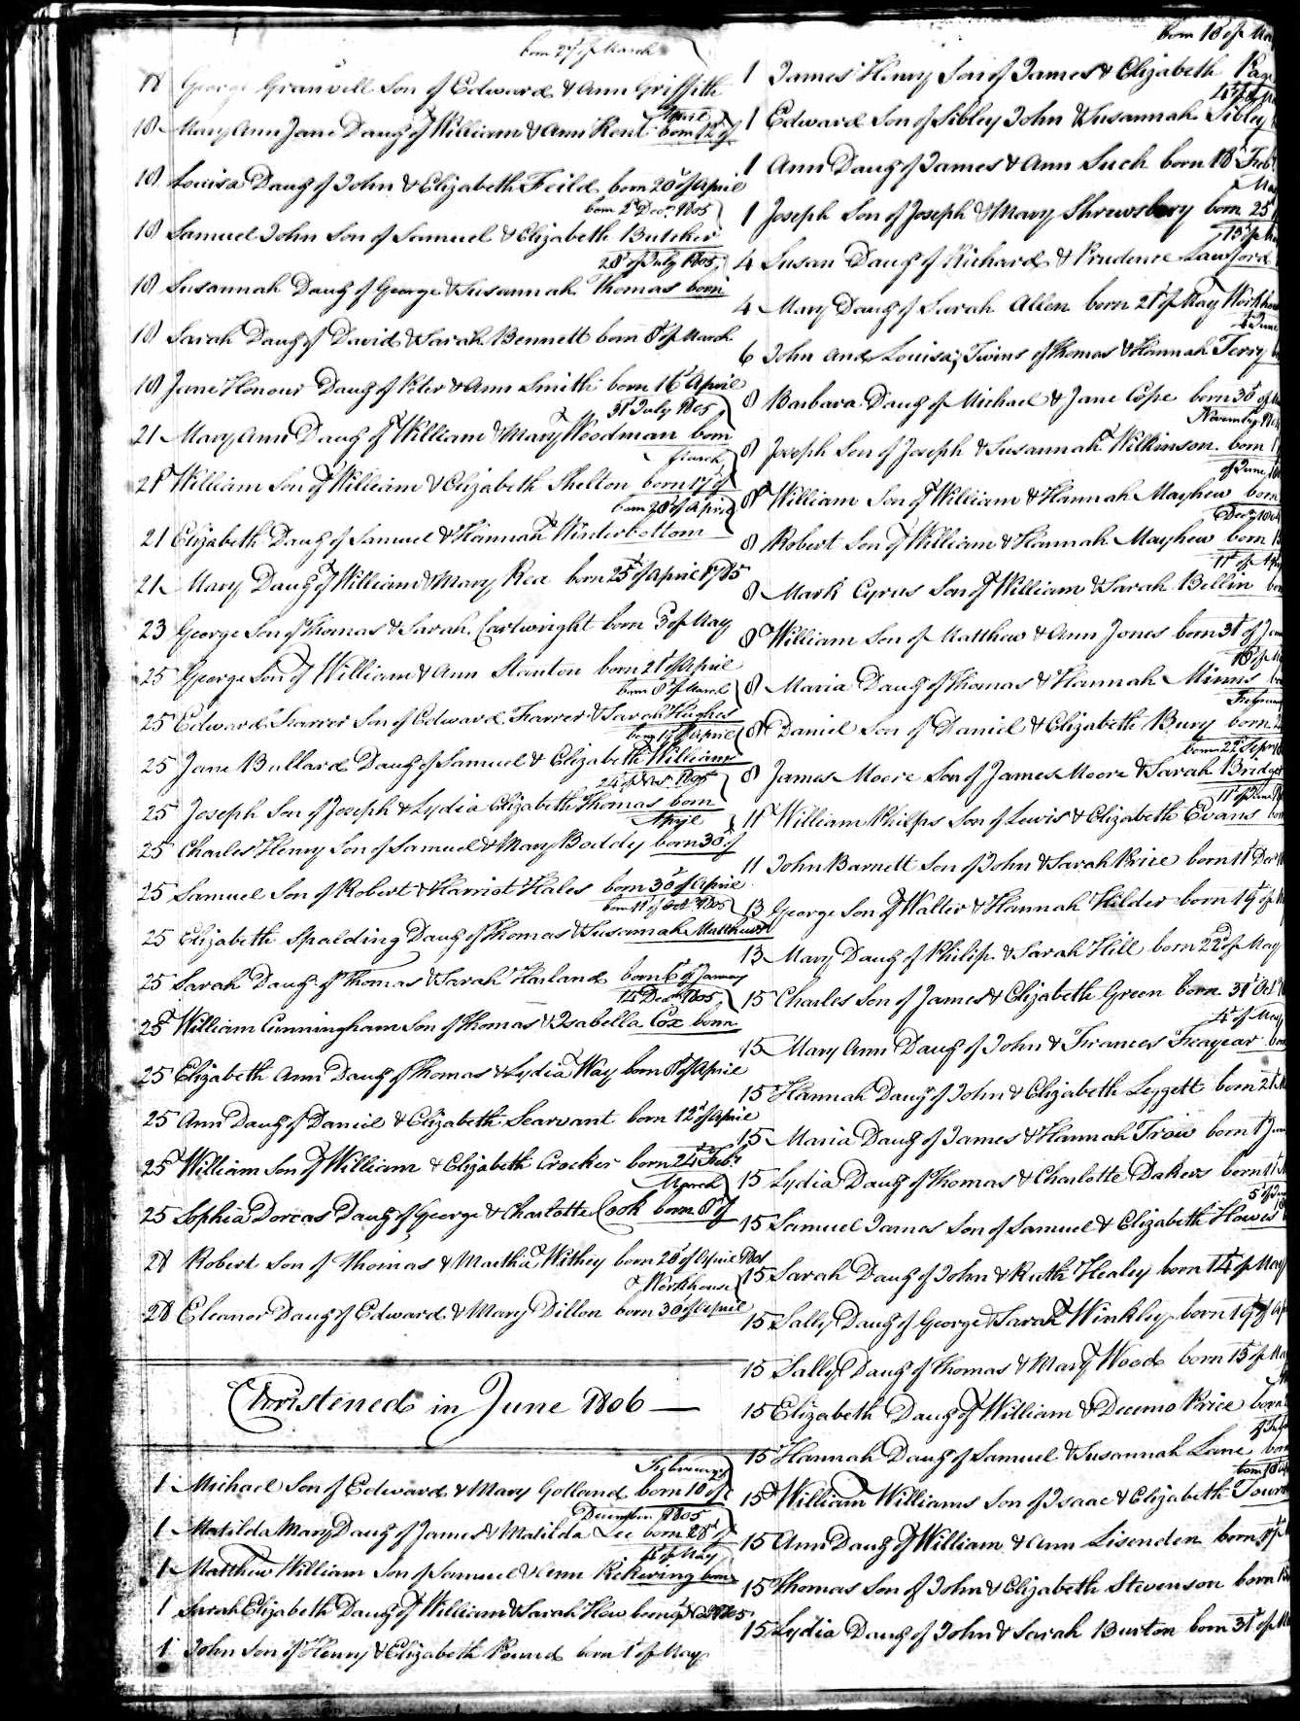 born 27th of March
18 George Granvill Son of Edward & Ann Griffith
April
18 Mary Ann Jane Daug of William & Ann Kent born 12th of
18 Louisa Daug of John & Elizabeth Feild born 20th of April
born 2d Decr 1805
18 Samuel John Son of Samuel & Elizabeth Butcher
28th of July 1805
18 Susannah Daug of George & Susannah Thomas born
18 Sarah Daug of David & Sarah Bennett born 8th of March
18 Jane Honour Daug of Peter & Ann Smith born 16th April
31st July 1805
21 Mary Ann Daug of William & Mary Woodman born
March
21 William Son of William & Elizabeth Shelton born 17th of
born 28th of April
21 Elizabeth Daug of Samuel & Hannah Winterbottom
21 Mary Daug of William & Mary Rea born 25th of April 1785
23 George Son of Thomas & Sarah Cartwright born 3d of May
25 George Son of William & Ann Stanton born 21st of April
born 8th of March
25 Edward Farrer Son of Edward Farrer & Sarah Hughes
born of April
25 Jane Bullard Daug of Samuel & Elizabeth Williams
24th of 1805
25 Joseph Son of Joseph & Lydia Elizabeth Thomas born
April
25 Charles Henry Son of Samuel & Mary Boddy born 30th of
25 Samuel Son of Robert & Harriot Hales born 30th of April
born 11th of Octr 1805
25 Elizabeth Spalding Daug of Thomas & Susannah Matthews
25 Sarah Daug of Thomas & Sarah Harland born 6th of Janry
14th Decr 1805
25 William Cunningham Son of Thomas & Isabella Cox born
25 Elizabeth Ann Daug of Thomas & Lydia Way born 8th of April
25 Ann Daug of Daniel & Elizabeth Searvant born 12th of April
25 William Son of William & Elizabeth Crocker born 24th Feby
March
25 Sophia Dorcas Daug of George & Charlotte Cook born 8th of
28 Robert Son of Thomas & Martha Withey born 20th of April 1801
Workhouse
28 Eleanor Daug of Edward & Mary Dillon born 30th of April
Christened in June 1806
February
1 Michael Son of Edward & Mary Golland born 10th of
December 1805
1 Matilda Mary Daug of James & Matilda Lee born 28th of
of May
1 Matthew William Son of Samuel & Ann Rickering born
1 Sarah Elizabeth Daug of William & Sarah How born 1805
1 John Son of Henry & Elizabeth Pound born 1st of May
born 18th of Ma
1 James Henry Son of James & Elizabeth Page
1 Edward Son of Sibley John & Susannah Sibley
1 Ann Daug of James & Ann Such born 18th Feb
Ma
1 Joseph Son of Joseph & Mary Shrewsbery born 25
15th of
4 Susan Daug of Richard & Prudence Lawford
4 Mary Daug of Sarah Allen born 21st of May Workhou
June
6 John and Louisa, Twins of Thomas & Hannah Terry
8 Barbara Daug of Michael & Jane Cope born 30th of
November
8 Joseph Son of Joseph & Susannah Wilkinson born
of June
8 William Son of William & Hannah Mayhew born
Decr 1804
8 Robert Son of William & Hannah Mayhew born
11th of Ap
8 Mark Cyrus Son of William & Sarah Bellin
8 William Son of Matthew & Ann Jones born 31st of Jan
18th of
8 Maria Daug of Thomas & Hannah Minns
February
8 Daniel Son of Daniel & Elizabeth Bury born
born 22d Sepr
8 James Moore Son of James Moore & Sarah Bridge
11th of
11 William Philps Son of Lewis & Elizabeth Evans
11 John Barnett Son of John & Sarah Price born 11th Decr
13 George Son of Walter & Hannah Hilder born 19th of
13 Mary Daug of Philip & Sarah Hill born 22d of May
15 Charles Son of James & Elizabeth Green born 31st Oct
4th of May
15 Mary Ann Daug of John & Frances Freayear
15 Hannah Daug of John & Elizabeth Leggett born 21st
15 Maria Daug of James & Hannah Trow born 1st Jan
15 Lydia Daug of Thomas & Charlotte Dakers born
5th of
15 Samuel James Son of Samuel & Elizabeth Howes
15 Sarah Daug of John & Ruth Healey born 14th of May
15 Sally Daug of George & Sarah Winkley born 19th of Ap
15 Sally Daug of Thomas & Mary Wood born 15th of Ma
15 Elizabeth Daug of William & Decemo Price born
of July
15 Hannah Daug of Samuel & Susannah Lane born
born
15 William Williams Son of Isaac & Elizabeth
15 Ann Daug of William & Ann Lisenden born
15 Thomas Son of John & Elizabeth Stevenson born
15 Lydia Daug of John & Sarah Burton born 31st of